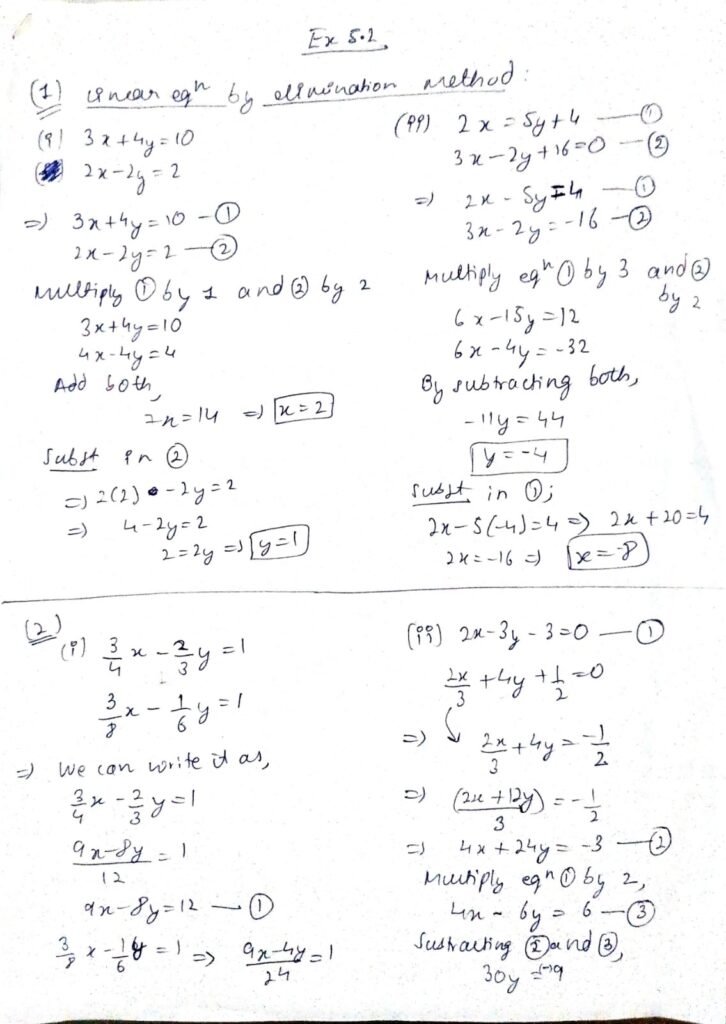 Ex 5.2
(1) Linear eqn by elimination method:
(i) 3x+4y=10
2x-2y=2
=) 3x+4y=10 - ①
2x-2y=2 — ②
Multiply ① by 1 and ② by 2
3x+4y=10
4x-4y=4
Add both,
7x=14 =) x=2
Subst in ②
=) 2(2) -2y=2
=) 4-2y=2
2=2y =) y=1
(ii) 2x=5y+4 — ①
3x-2y+16=0 — ②
=) 2x-5y=4 — ①
3x-2y=-16 — ②
Multiply eqn ① by 3 and ②
by 2
6x-15y=12
6x-4y=-32
By subtracting both,
-11y=44
y=-4
Subst in ①;
2x-5(-4)=4 => 2x+20=4
2x=-16 =) x=-8
(2)
(i) 3/4 x - 2/3 y = 1
3/8 x - 1/6 y = 1
=) We can write it as,
3/4 x - 2/3 y = 1
(9x-8y)/12 = 1
9x-8y=12 — ①
3/8 x - 1/6 y = 1 => (9x-4y)/24 = 1
(ii) 2x-3y-3=0 — ①
2x/3 + 4y + 1/2 = 0
=) 2x/3 + 4y = -1/2
=) (2x+12y)/3 = -1/2
=) 4x+24y=-3 — ②
Multiply eqn ① by 2,
4x-6y=6 — ③
Sustracting ② and ③,
30y=-9